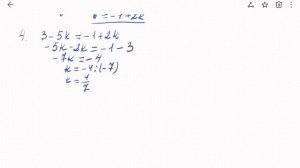 = -1+2k
4. 3-5k=-1+2k
-5k-2k=-1-3
-7k=-4
k=-4:(-7)
k=4/7